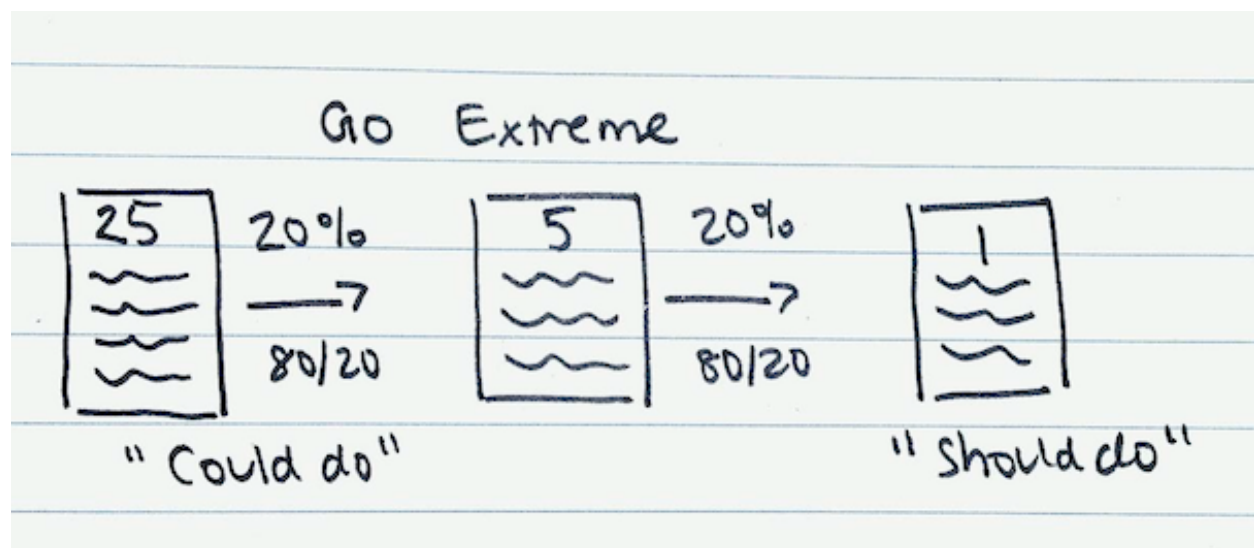 Go Extreme
25 20% 5 20% 1
80/20 80/20
"Could do" "Should do"